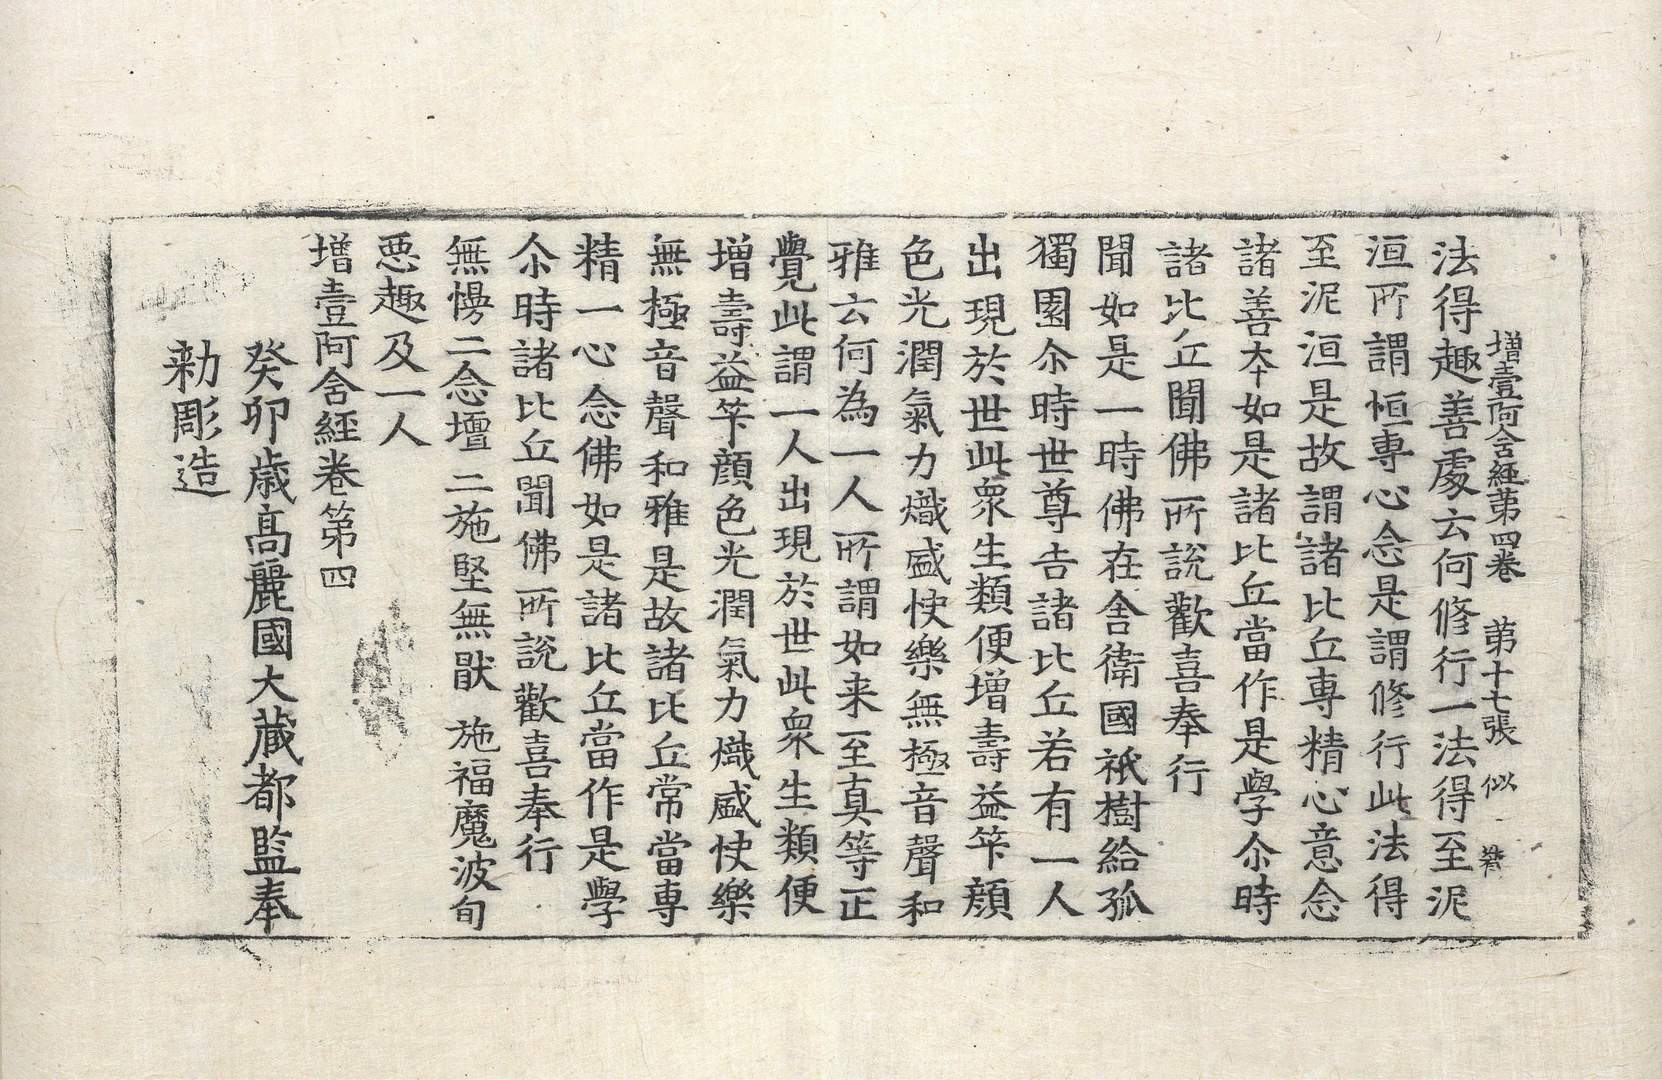 增壹阿含經第四卷 第十七張 似
法得趣善處云何修行一法得至泥
洹所謂恒專心念是謂修行此法得
至泥洹是故謂諸比丘專精心意念
諸善本如是諸比丘當作是學尒時
諸比丘聞佛所說歡喜奉行
聞如是一時佛在舍衛國祇樹給孤
獨園尒時世尊告諸比丘若有一人
出現於世此衆生類便增壽益筭顏
色光潤氣力熾盛快樂無極音聲和
雅云何為一人所謂如来至真等正
覺此謂一人出現於世此衆生類便
增壽益筭顏色光潤氣力熾盛快樂
無極音聲和雅是故諸比丘常當專
精一心念佛如是諸比丘當作是學
尒時諸比丘聞佛所說歡喜奉行
無慢二念壇 二施堅無猒 施福魔波旬
惡趣及一人
增壹阿含經卷第四
癸卯歲高麗國大藏都監奉
勅彫造